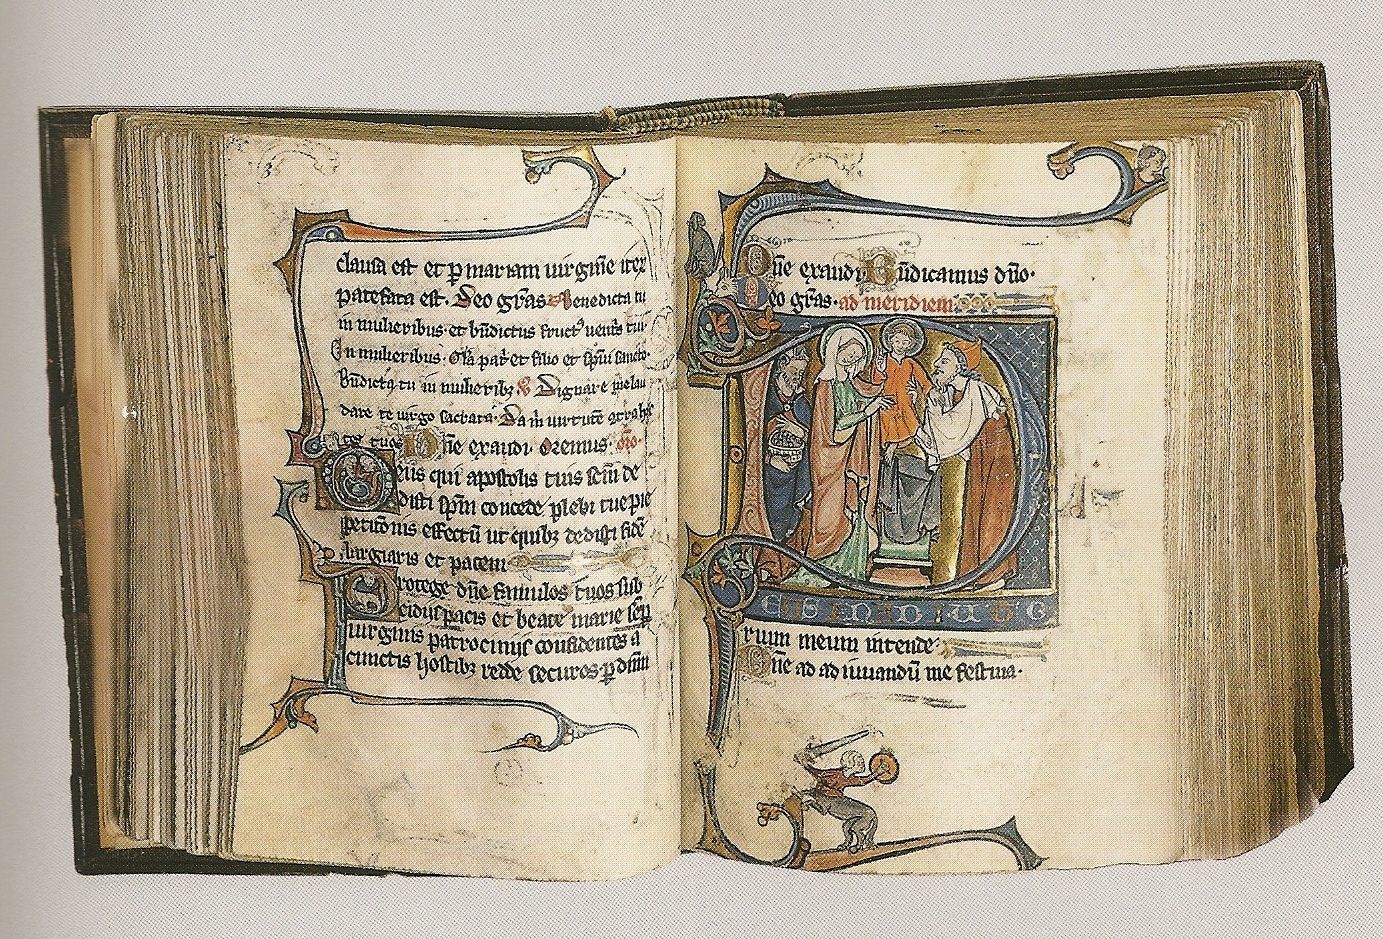 clausa est et p mariam uirgine iter
patefata est. Deo gras Benedicta tu
in mulieribus. et bndictus fruct' uentris tui.
In mulieribus. Gla patri et filio et spui sancto.
Bndicta tu in mulierib; Dignare me lau
dare te uirgo sacrata. Da m uirtute
tes tuos Dne exaudi. Oremus. Oro.
Deus qui apostolis tuis scm de
disti spm concede plebi tue pie
peticionis effectu ut quib; dedisti fide
largiaris et pacem
Protege dne famulos tuos sub
sidiis pacis et beate marie semp
uirginis patrocinijs confidentes a
cunctis hostib; redde securos. p dnm
Dne exaudi Bndicamus dno.
Deo gras. ad meridiem.
EUS IN ADIUTO
rium meum intende.
Dne ad adiuuandu me festina.